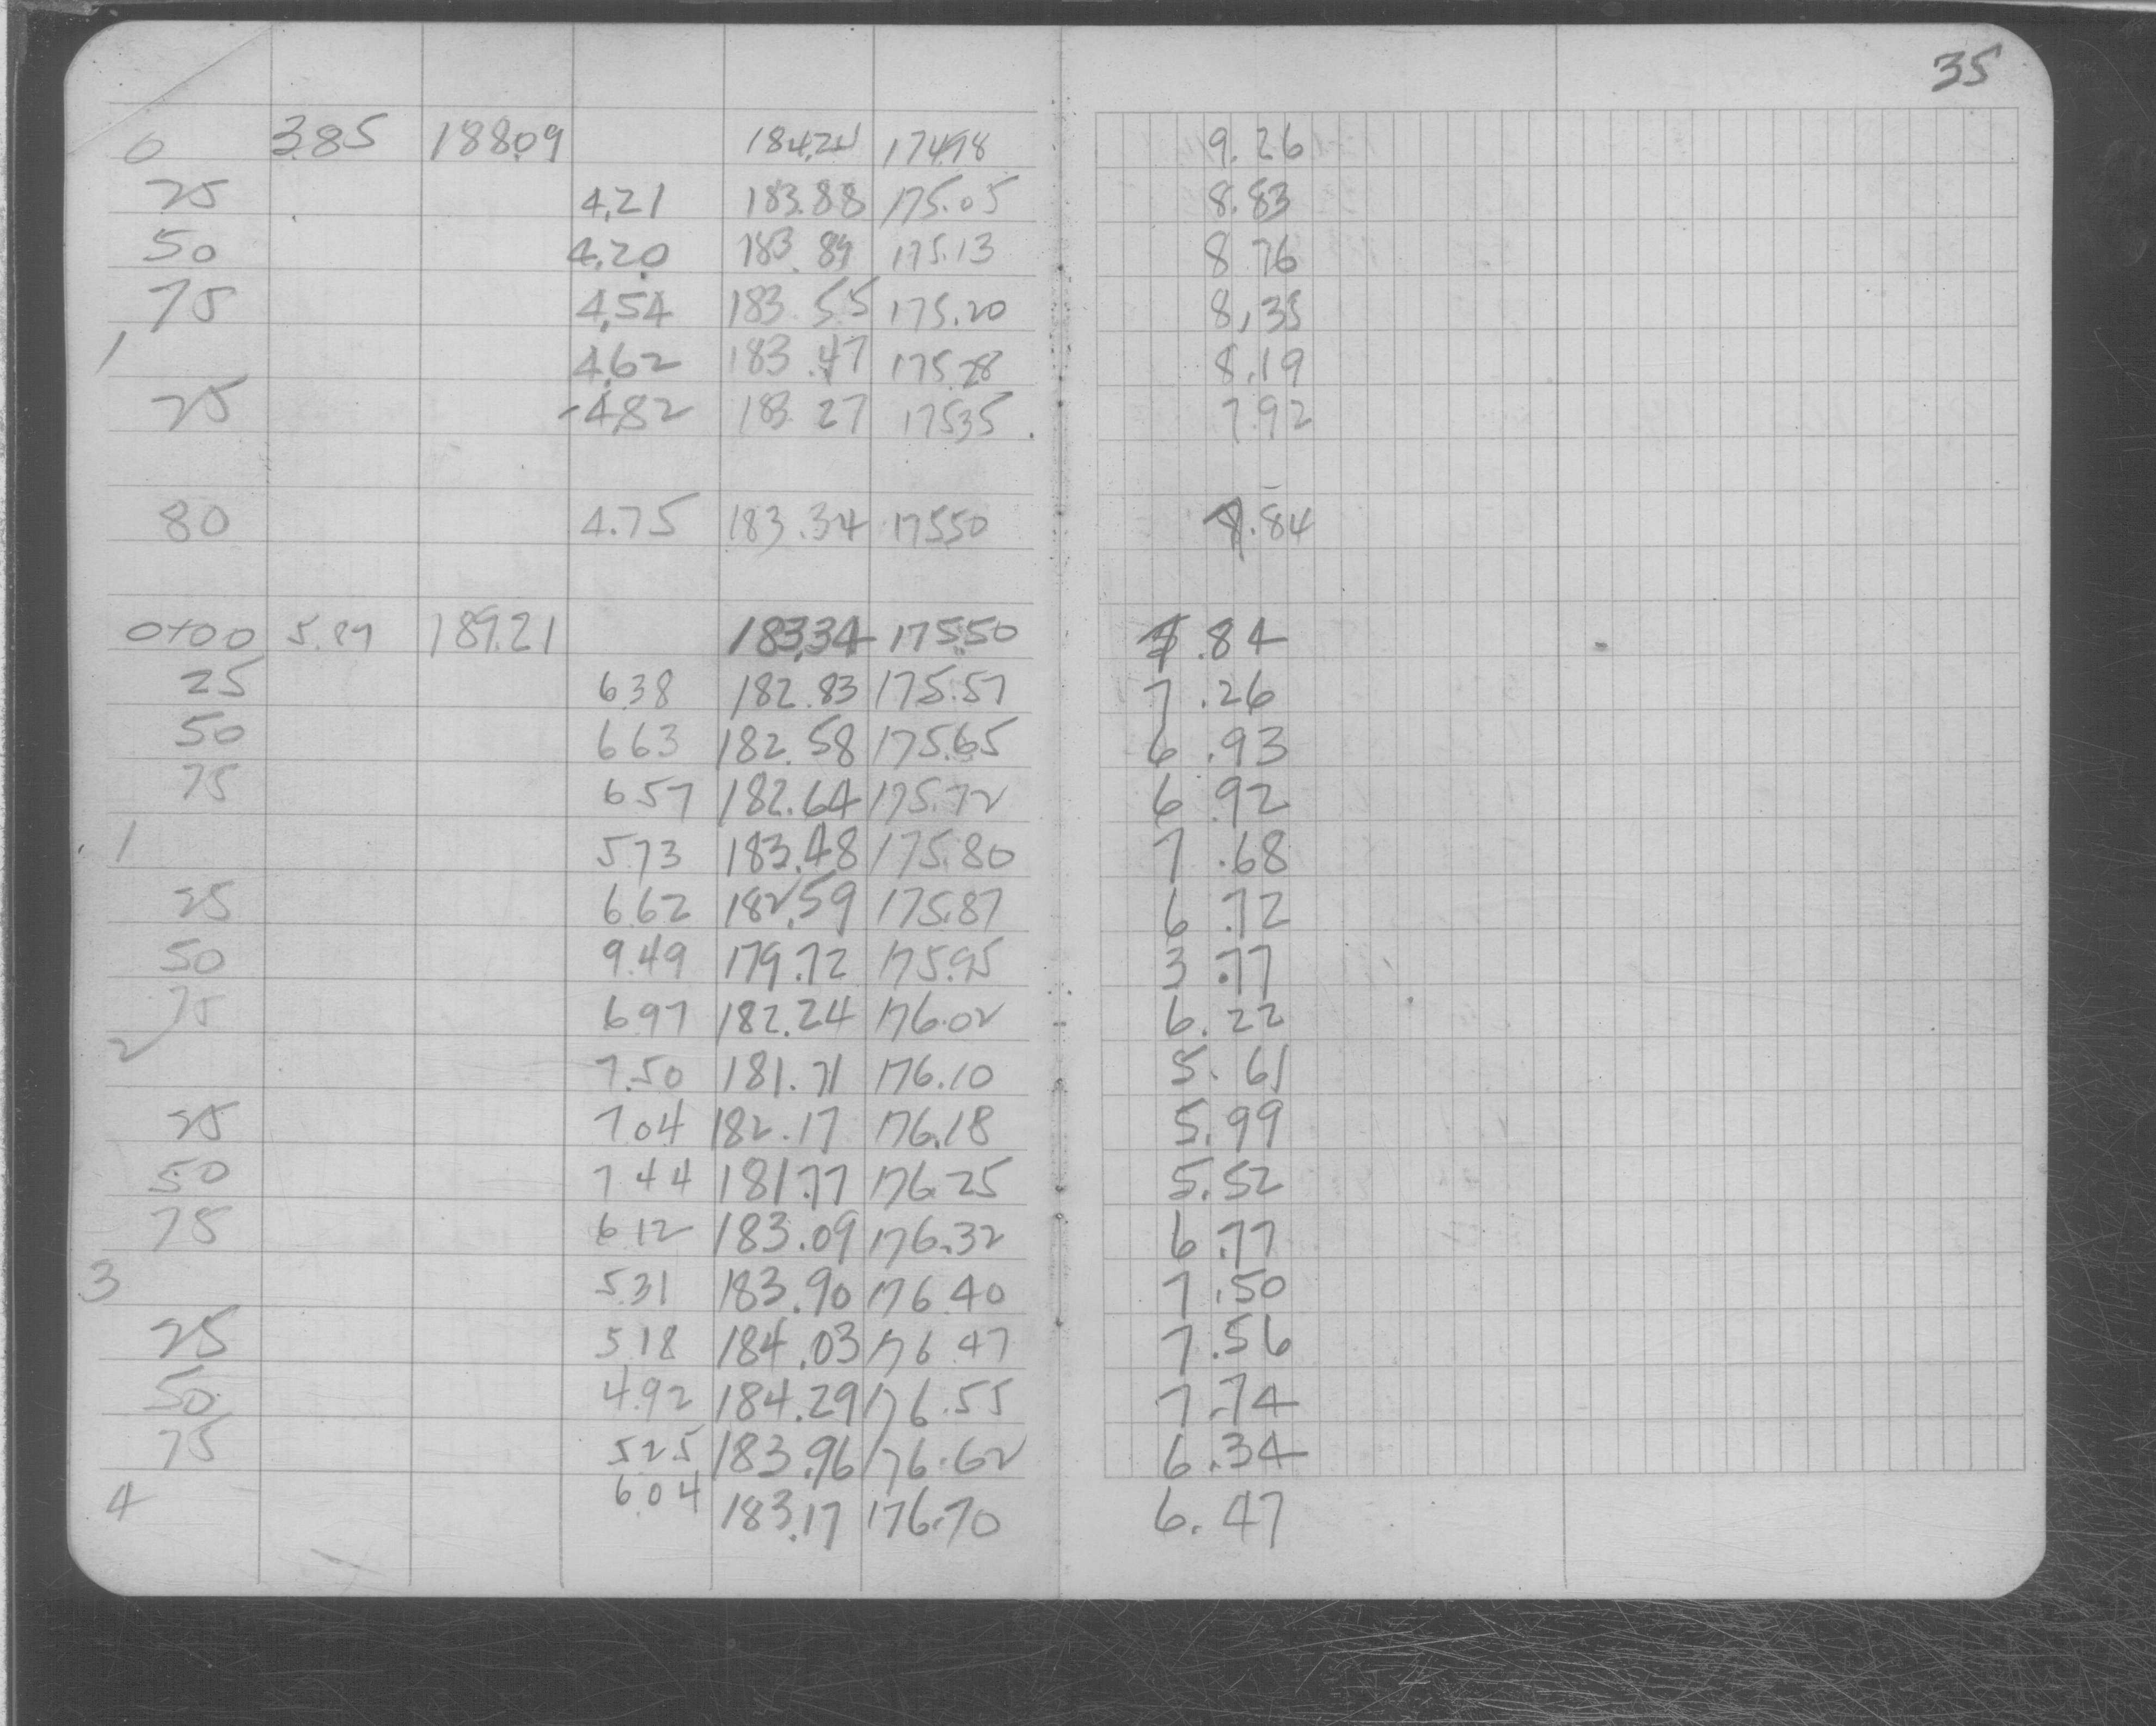 35
0 3.85 188.09 184.24 174.98 9.26
25 4.21 183.88 175.05 8.83
50 4.20 183.89 175.13 8.76
75 4.54 183.55 175.20 8.35
1 4.62 183.47 175.28 8.19
25 -4.82 183.27 175.35 7.92
80 4.75 183.34 175.50 7.84
0+00 5.87 189.21 183.34 175.50 7.84
25 6.38 182.83 175.57 7.26
50 6.63 182.58 175.65 6.93
75 6.57 182.64 175.72 6.92
1 5.73 183.48 175.80 7.68
25 6.62 182.59 175.87 6.72
50 9.49 179.72 175.95 3.77
75 6.97 182.24 176.02 6.22
2 7.50 181.71 176.10 5.61
25 7.04 182.17 176.18 5.99
50 7.44 181.77 176.25 5.52
75 6.12 183.09 176.32 6.77
3 5.31 183.90 176.40 7.50
25 5.18 184.03 176.47 7.56
50 4.92 184.29 176.55 7.74
75 5.25 183.96 176.62 6.34
4 6.04 183.17 176.70 6.47